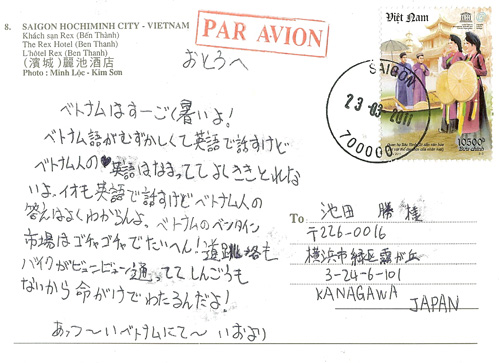 8. SAIGON HOCHIMINH CITY - VIETNAM
Khách sạn Rex (Bến Thành)
The Rex Hotel (Ben Thanh)
L'hôtel Rex (Ben Thanh)
(濱城)麗池酒店
Photo : Minh Lộc - Kim Sơn
PAR AVION
Việt Nam
10500đ
Bưu chính
SAIGON
23-03-2011
700000
おとうへ
ベトナムはすーごく暑いよ!
ベトナム語がむずかしくて英語で話すけど
ベトナム人の英語はなまっててよくききとれな
いよ、イオも英語で話すけどベトナム人の
答えはよくわからんよ、ベトナムのベンタイン
市場はゴチャゴチャでたいへん!道路も
バイクがビュンビュン通っててしんごうも
ないから命がけでわたるんだよ!
あっつ〜いベトナムにて〜 いおより
To 池田 勝 様
〒226-0016
横浜市緑区霧が丘
3-24-6-101
KANAGAWA
JAPAN